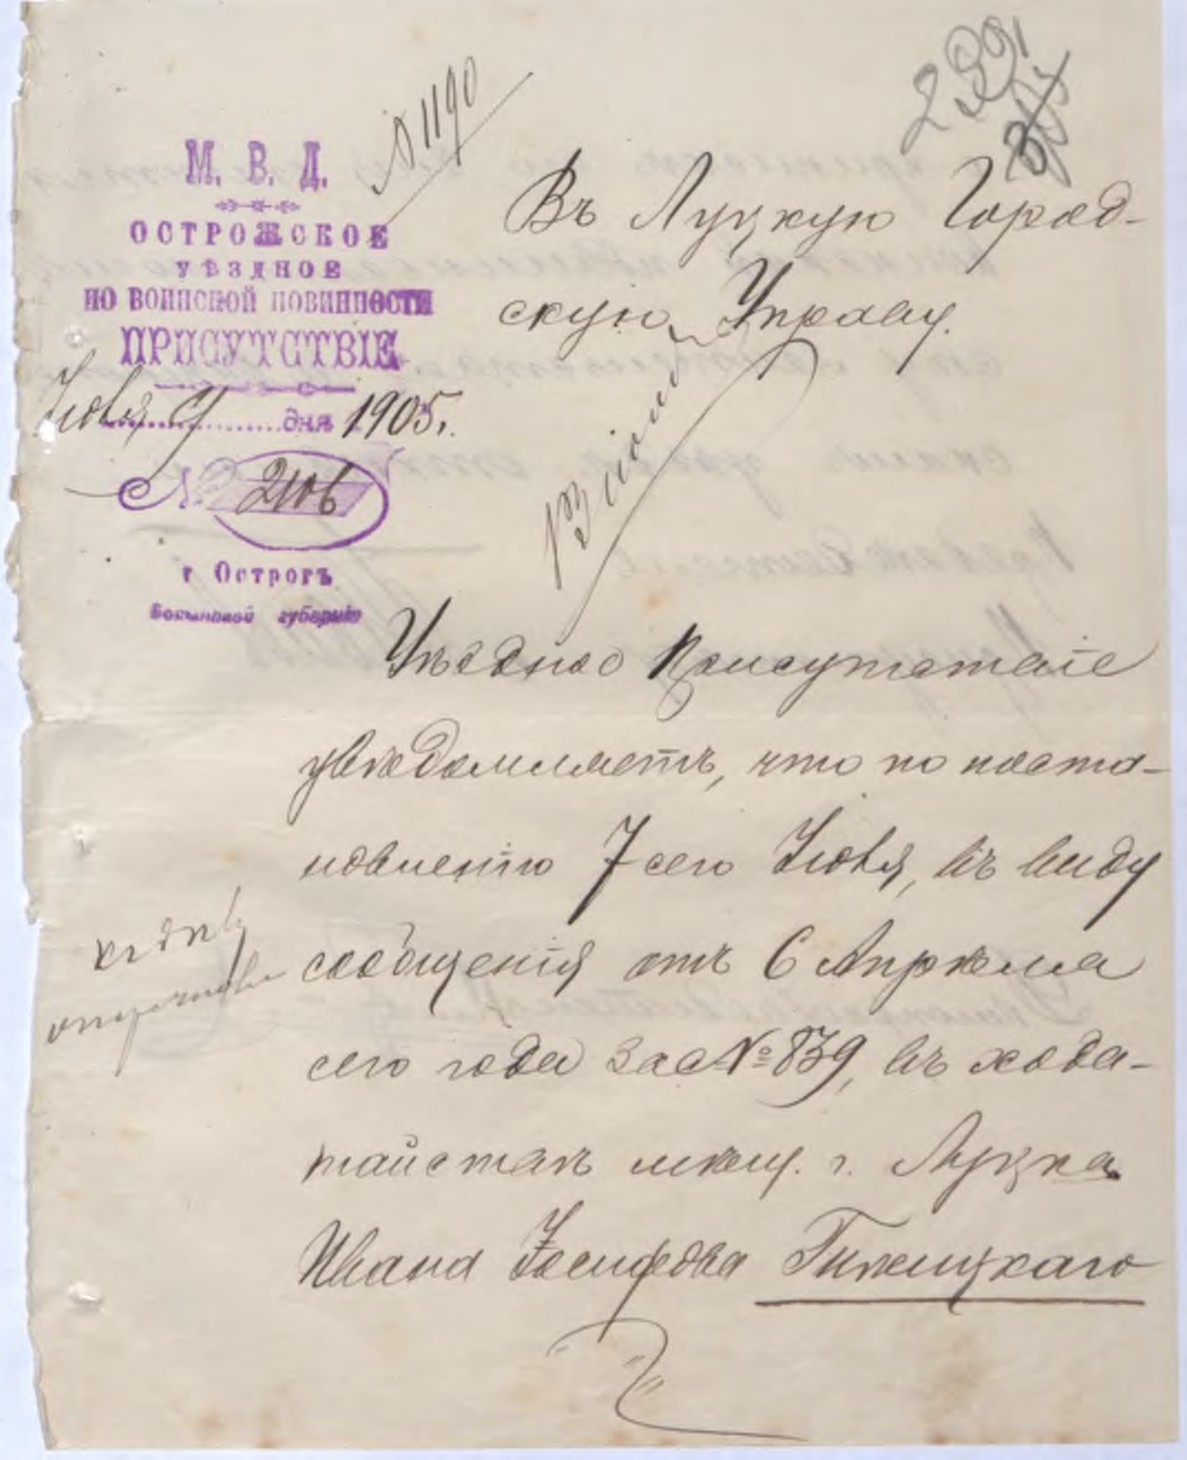 № 1190
М. В. Д.
ОСТРОЖСКОЕ
УѢЗДНОЕ
ПО ВОИНСКОЙ ПОВИННОСТИ
ПРИСУТСТВІЕ
Іюня 9 дня 1905 г.
№ 2106
г Острогъ
Волынской губерніи
Въ Луцкую Город-
скую Управу.
13 іюня
Уѣздное Присутствіе
увѣдомляетъ, что по поста-
новленію 7 сего Іюня, въ виду
сообщенія отъ 6 Апрѣля
сего года за № 839, въ хода-
тайствѣ мѣщ. г. Луцка
Ивана Іосифова Гилецкаго